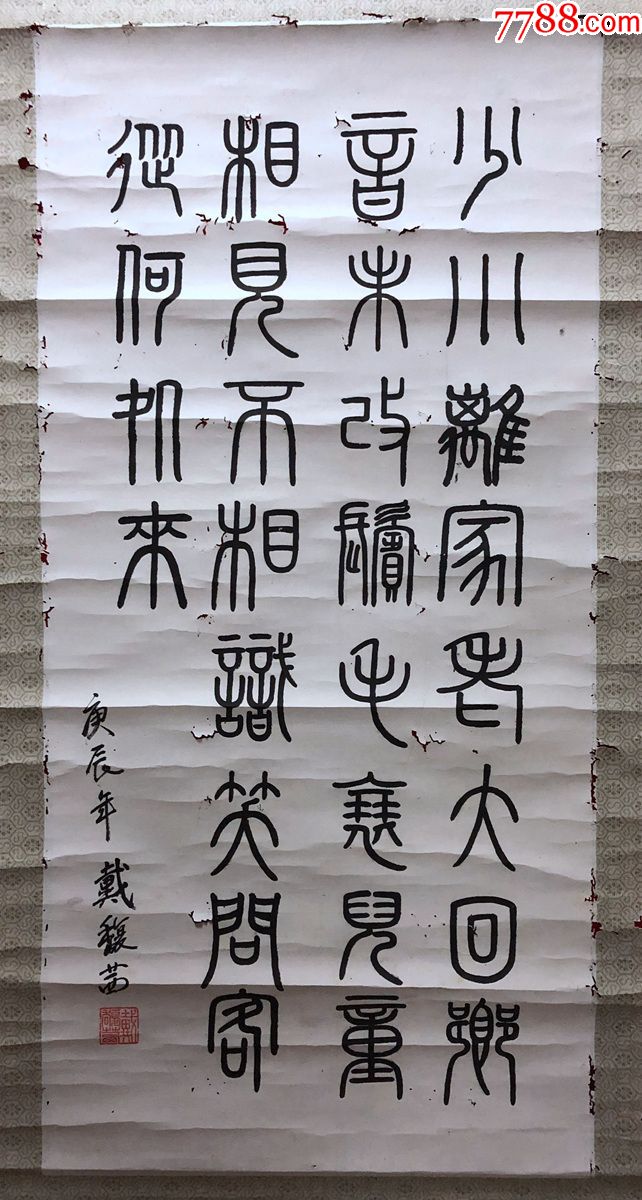 7788.com
少小離家老大回鄉
音未改鬢毛衰兒童
相見不相識笑問客
從何処來
庚辰年 戴馥茜